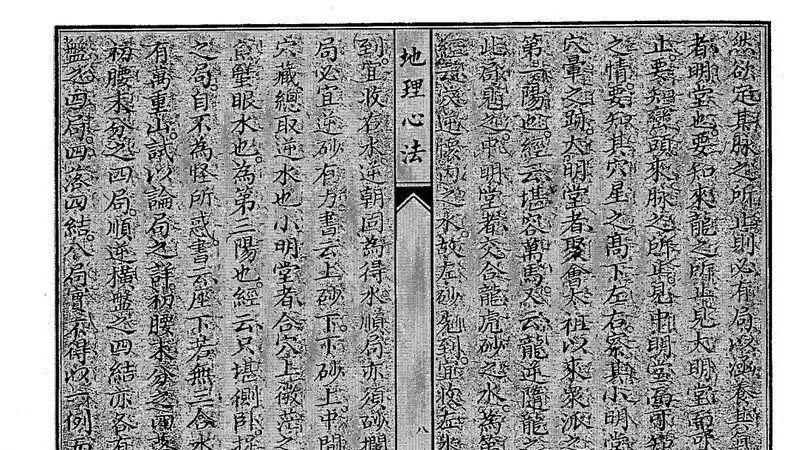 然欲定其脉之所止則必有局以涵養其氣
者明堂也要知來龍之所止見大明堂而
止要知龍頭來脉之所止見中明堂而可
之情要知其穴星之高下左右察其小明堂
穴暈之跡大明堂者聚會太祖以來衆派之
第一陽也經云堪容萬馬又云龍逆隨龍之
此之中明堂者交合龍虎砂之水為第
逆腰內之水故左砂到宜收左
地理心法
八
到宜收右水逆朝回為得水順局亦須砂攔
局必宜逆砂有力書云上砂下下砂上中
穴藏總取逆水也小明堂者合穴上微茫之
蟹眼水也為第三陽也經云只堪側臥
之句自不為怪所惑書云座下若無三合水
有萬重山試以論局之詳初腰末分之四落
初腰末分之四局順逆橫盤之四結亦各有
盤之四局四落四結入局實不得以一例而